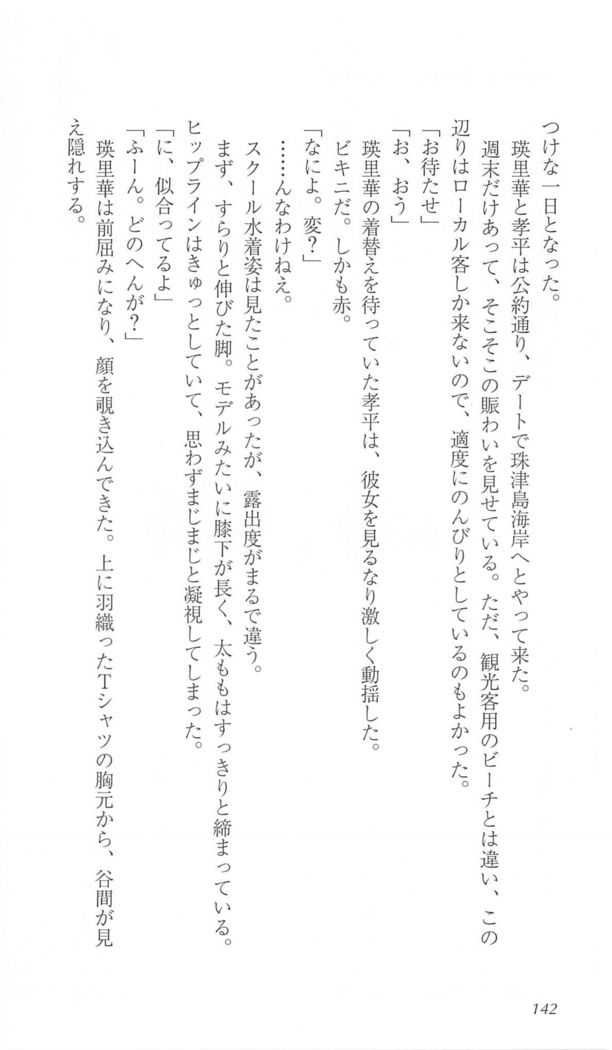 つけな一日となった。
瑛里華と孝平は公約通り、デートで珠津島海岸へとやって来た。
週末だけあって、そこそこの賑わいを見せている。ただ、観光客用のビーチとは違い、この
辺りはローカル客しか来ないので、適度にのんびりとしているのもよかった。
「お待たせ」
「お、おう」
瑛里華の着替えを待っていた孝平は、彼女を見るなり激しく動揺した。
ビキニだ。しかも赤。
「なによ。変？」
……んなわけねえ。
スクール水着姿は見たことがあったが、露出度がまるで違う。
まず、すらりと伸びた脚。モデルみたいに膝下が長く、太ももはすっきりと締まっている。
ヒップラインはきゅっとしていて、思わずまじまじと凝視してしまった。
「に、似合ってるよ」
「ふーん。どのへんが？」
瑛里華は前屈みになり、顔を覗き込んできた。上に羽織ったTシャツの胸元から、谷間が見
え隠れする。
142